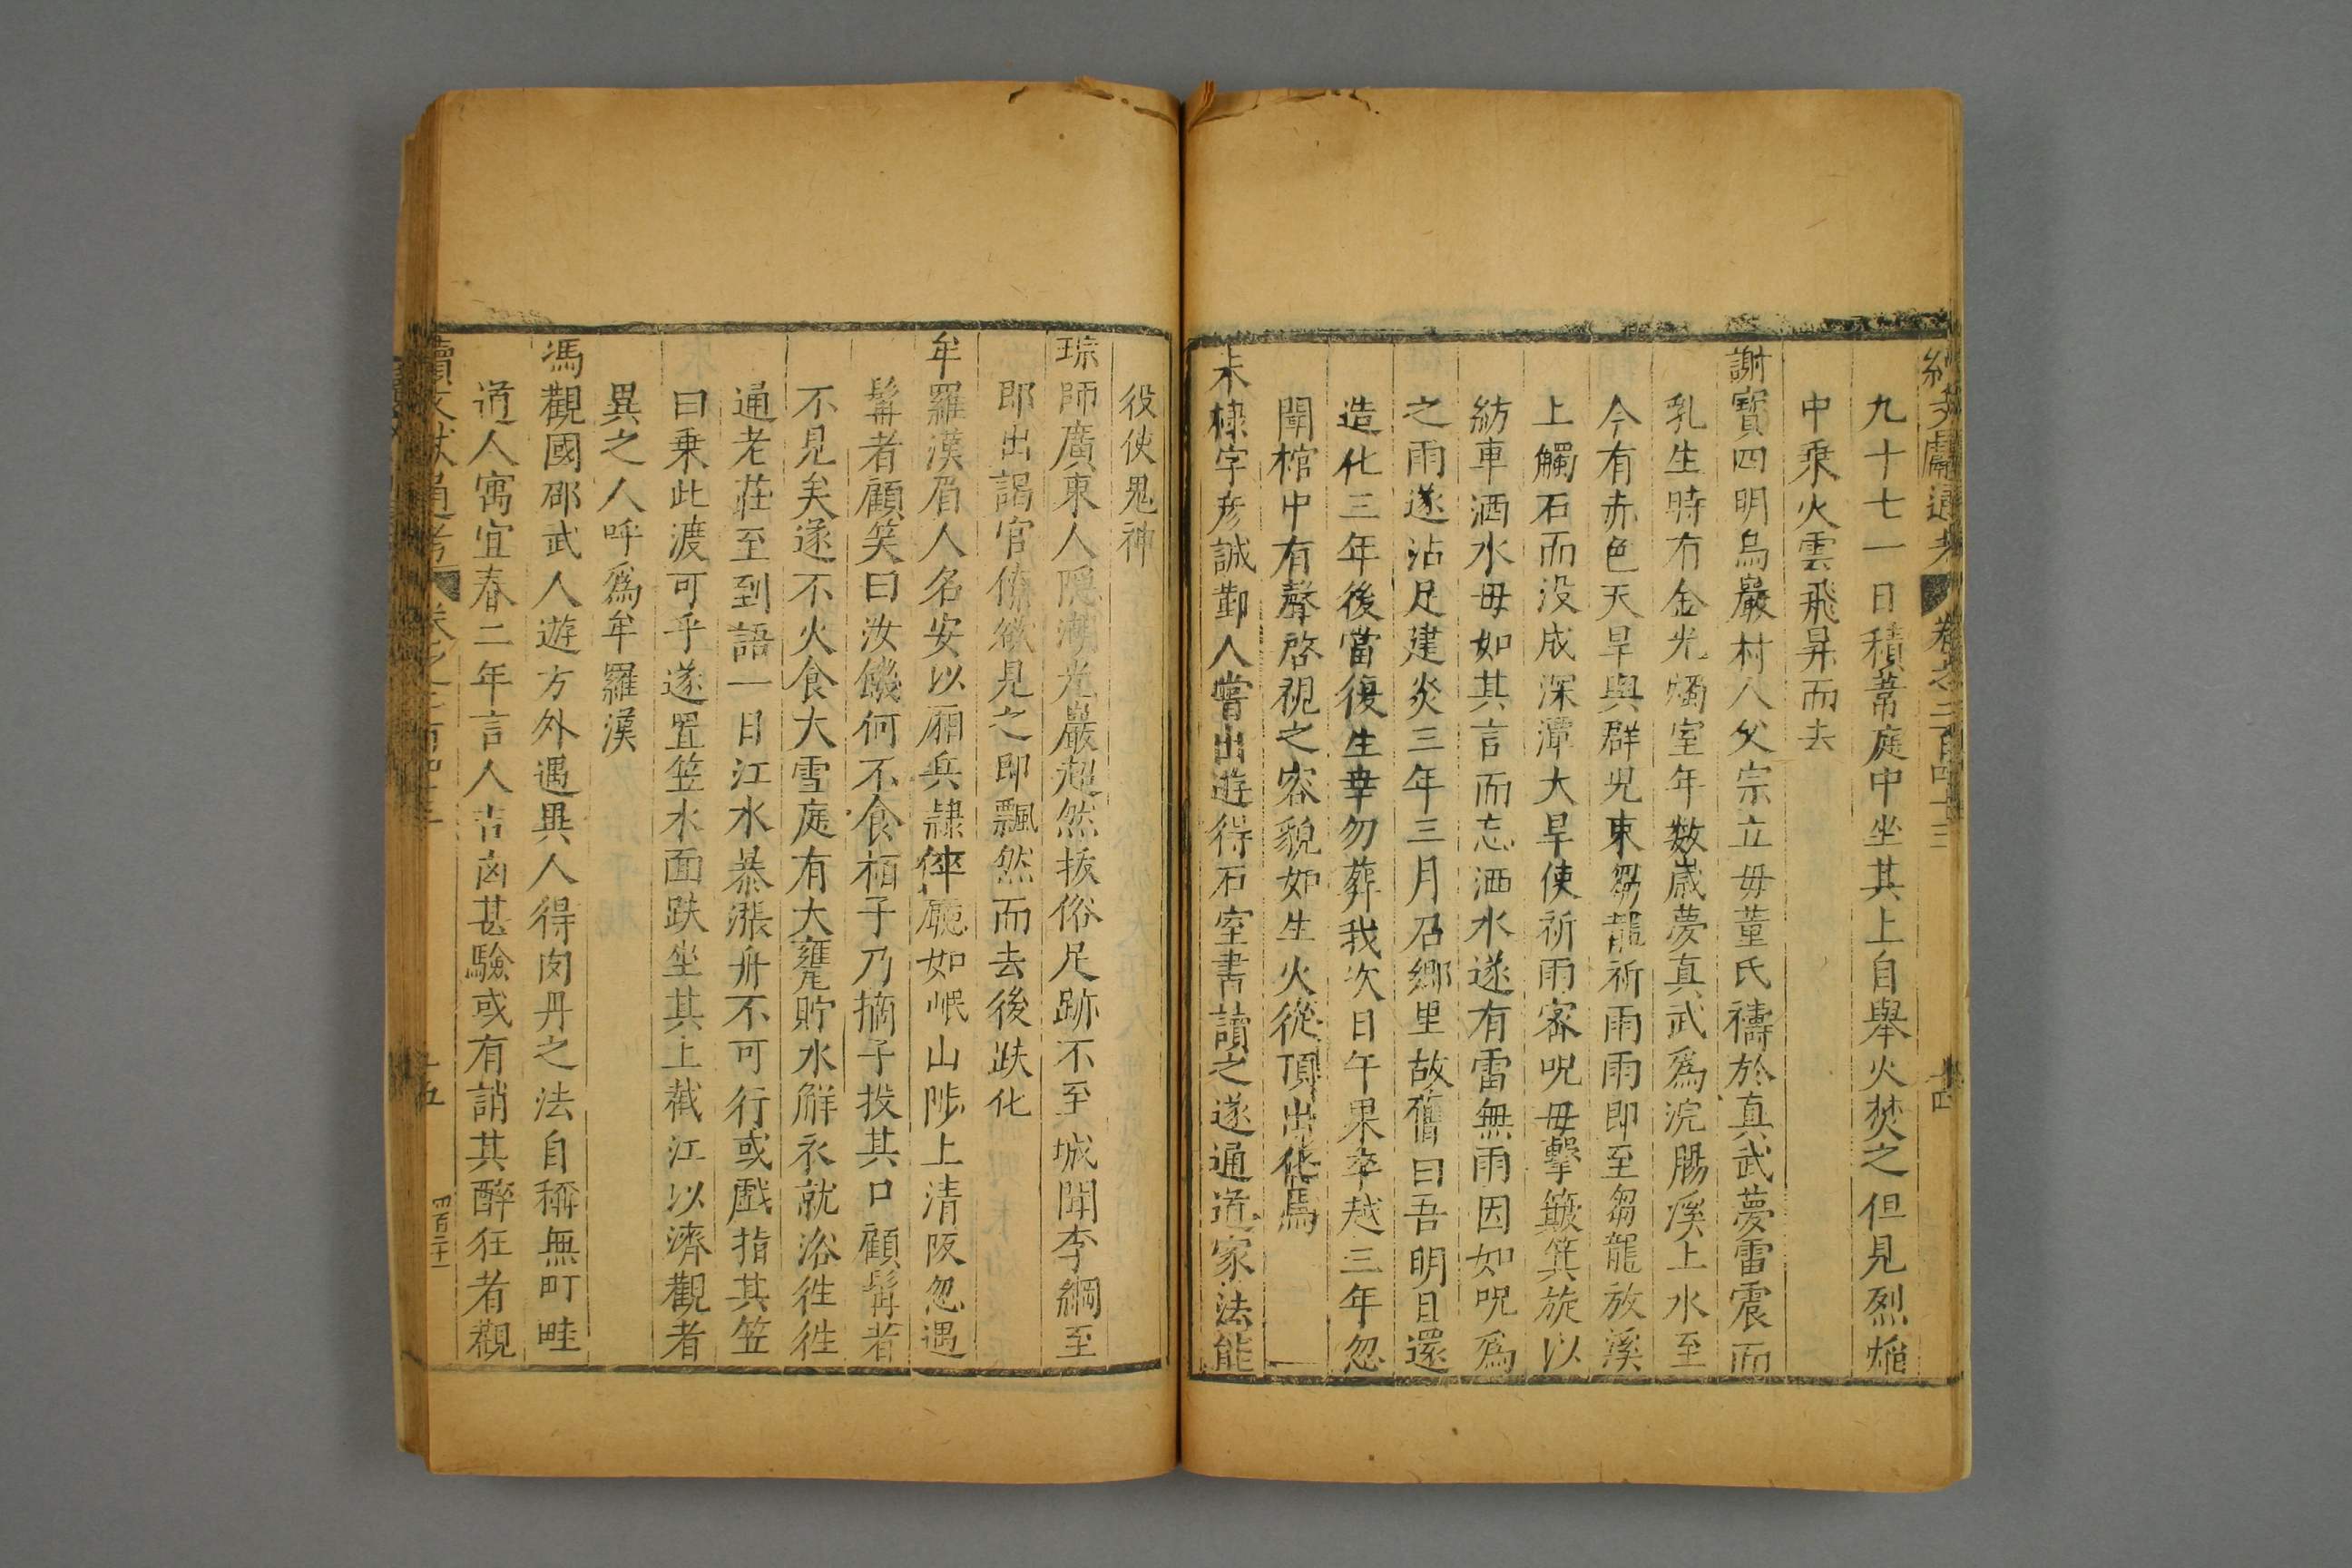 續文獻通考 卷之二百四十三 十四
九十七一日積薪庭中坐其上自舉火焚之但見烈燄
中乗火雲飛昇而去
謝寳四明烏巖村人父宗立毋董氏禱於真武夢雷震而
乳生時有金光燭室年数歲夢真武爲浣腸溪上水至
今有赤色天旱與群兒束芻龍祈雨雨即至芻龍放溪
上觸石而没成深潭大旱使祈雨客呪毋擊簸箕旋以
紡車洒水毋如其言而忘洒水遂有雷無雨因如呪爲
之雨遂沾足建炎三年三月召鄉里故舊曰吾明日還
造化三年後當復生幸勿葬我次日午果卒越三年忽
聞棺中有聲啓視之容貌如生火從頂出化焉
未棣字彦誠鄞人嘗出遊得石室書讀之遂通道家法能
役使鬼神
琮師廣東人隠潮光巖超然拔俗足跡不至城闉李綱至
即出謁官僚欲見之即飄然而去後趺化
牟羅漢眉人名安以廂兵隷倅廳如岷山陟上清阪忽遇
髯者顧笑曰汝饑何不食栢子乃摘子投其口顧髯者
不見矣遂不火食大雪庭有大甕貯水解衣就浴徃徃
通老莊至到語一日江水暴漲舟不可行或戲指其笠
曰乗此渡可乎遂置笠水面趺坐其上截江以濟觀者
異之人呼爲牟羅漢
馮觀國邵武人遊方外遇異人得内丹之法自稱無町畦
道人寓宜春二年言人吉凶甚驗或有誚其醉狂者觀
續文獻通考 卷之二百四十三 十五
四百二十